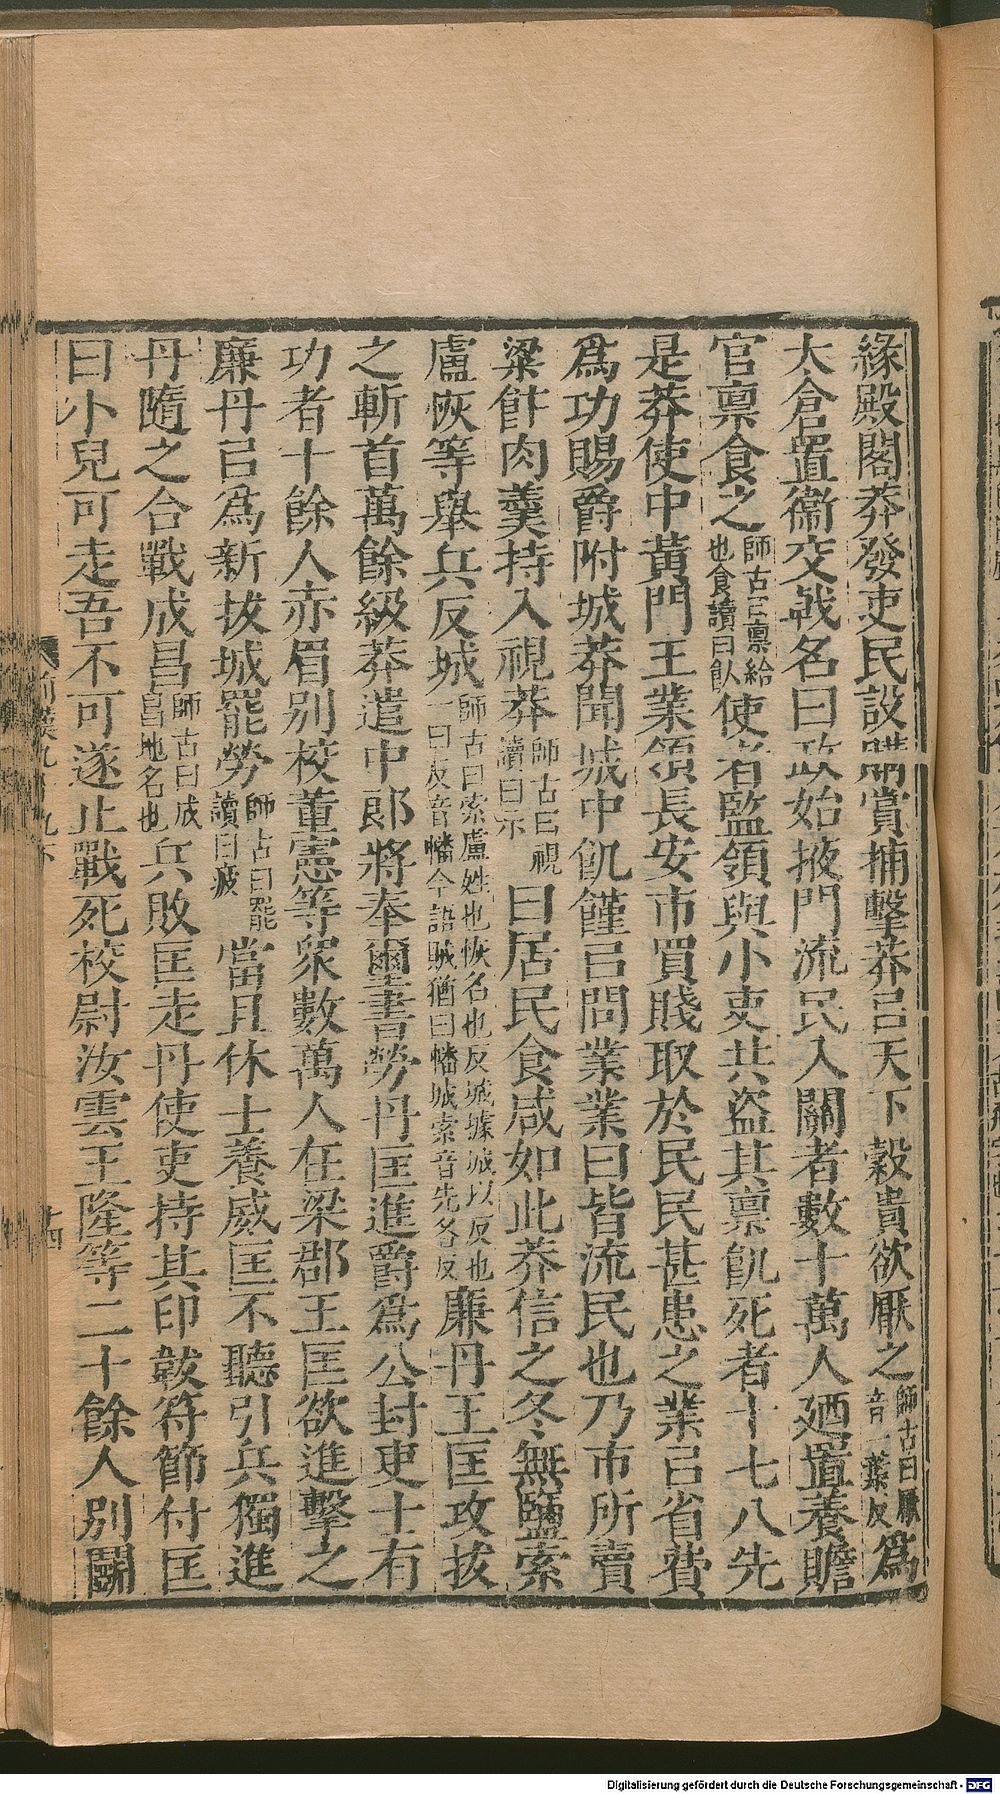 緣殿閣莽發吏民設購賞捕擊莽㠯天下穀貴欲厭之師古曰厭音一葉反爲
大倉置衞交戟名曰政始掖門流民入關者數十萬人廼置養贍
官稟食之師古曰稟給也食讀曰飤使者監領與小吏共盜其稟飢死者十七八先
是莽使中黃門王業領長安市買賤取於民民甚患之業㠯省費
爲功賜爵附城莽聞城中飢饉㠯問業業曰皆流民也乃市所賣
粱飰肉羹持入視莽師古曰視讀曰示曰居民食咸如此莽信之冬無鹽索
盧恢等舉兵反城師古曰索盧姓也恢名也反城據城以反也一曰反音幡今語賊猶曰幡城索音先各反廉丹王匡攻拔
之斬首萬餘級莽遣中郞將奉璽書勞丹匡進爵爲公封吏士有
功者十餘人赤眉別校董憲等衆數萬人在梁郡王匡欲進擊之
廉丹㠯爲新拔城罷勞師古曰罷讀曰疲當且休士養威匡不聽引兵獨進
丹隨之合戰成昌師古曰成昌地名也兵敗匡走丹使吏持其印韍符節付匡
曰小兒可走吾不可遂止戰死校尉汝雲王隆等二十餘人別鬬
十四
Digitalisierung gefördert durch die Deutsche Forschungsgemeinschaft - DFG